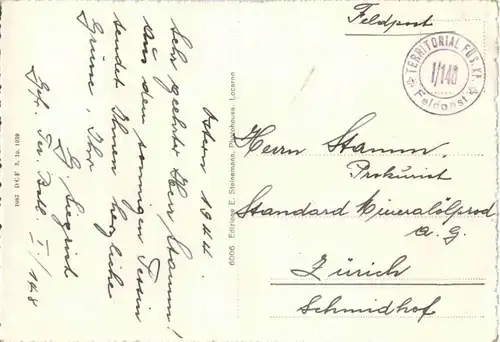 Feldpost
TERRITORIAL FÜS. KP.
I/148
Feldpost
Ostern 1944.
Sehr geehrter Herr Stamm!
Aus dem sonnigen Tessin
sendet Ihnen herzliche
Grüsse, Ihr
G. Siegrist
Gefr. Ter. Bat. I/148
Herrn Stamm.
Prokurist
Standard Mineralölprod
A. G.
Zürich
Schmidhof
6006 Edizione E. Steinemann, Photohouse, Locarno